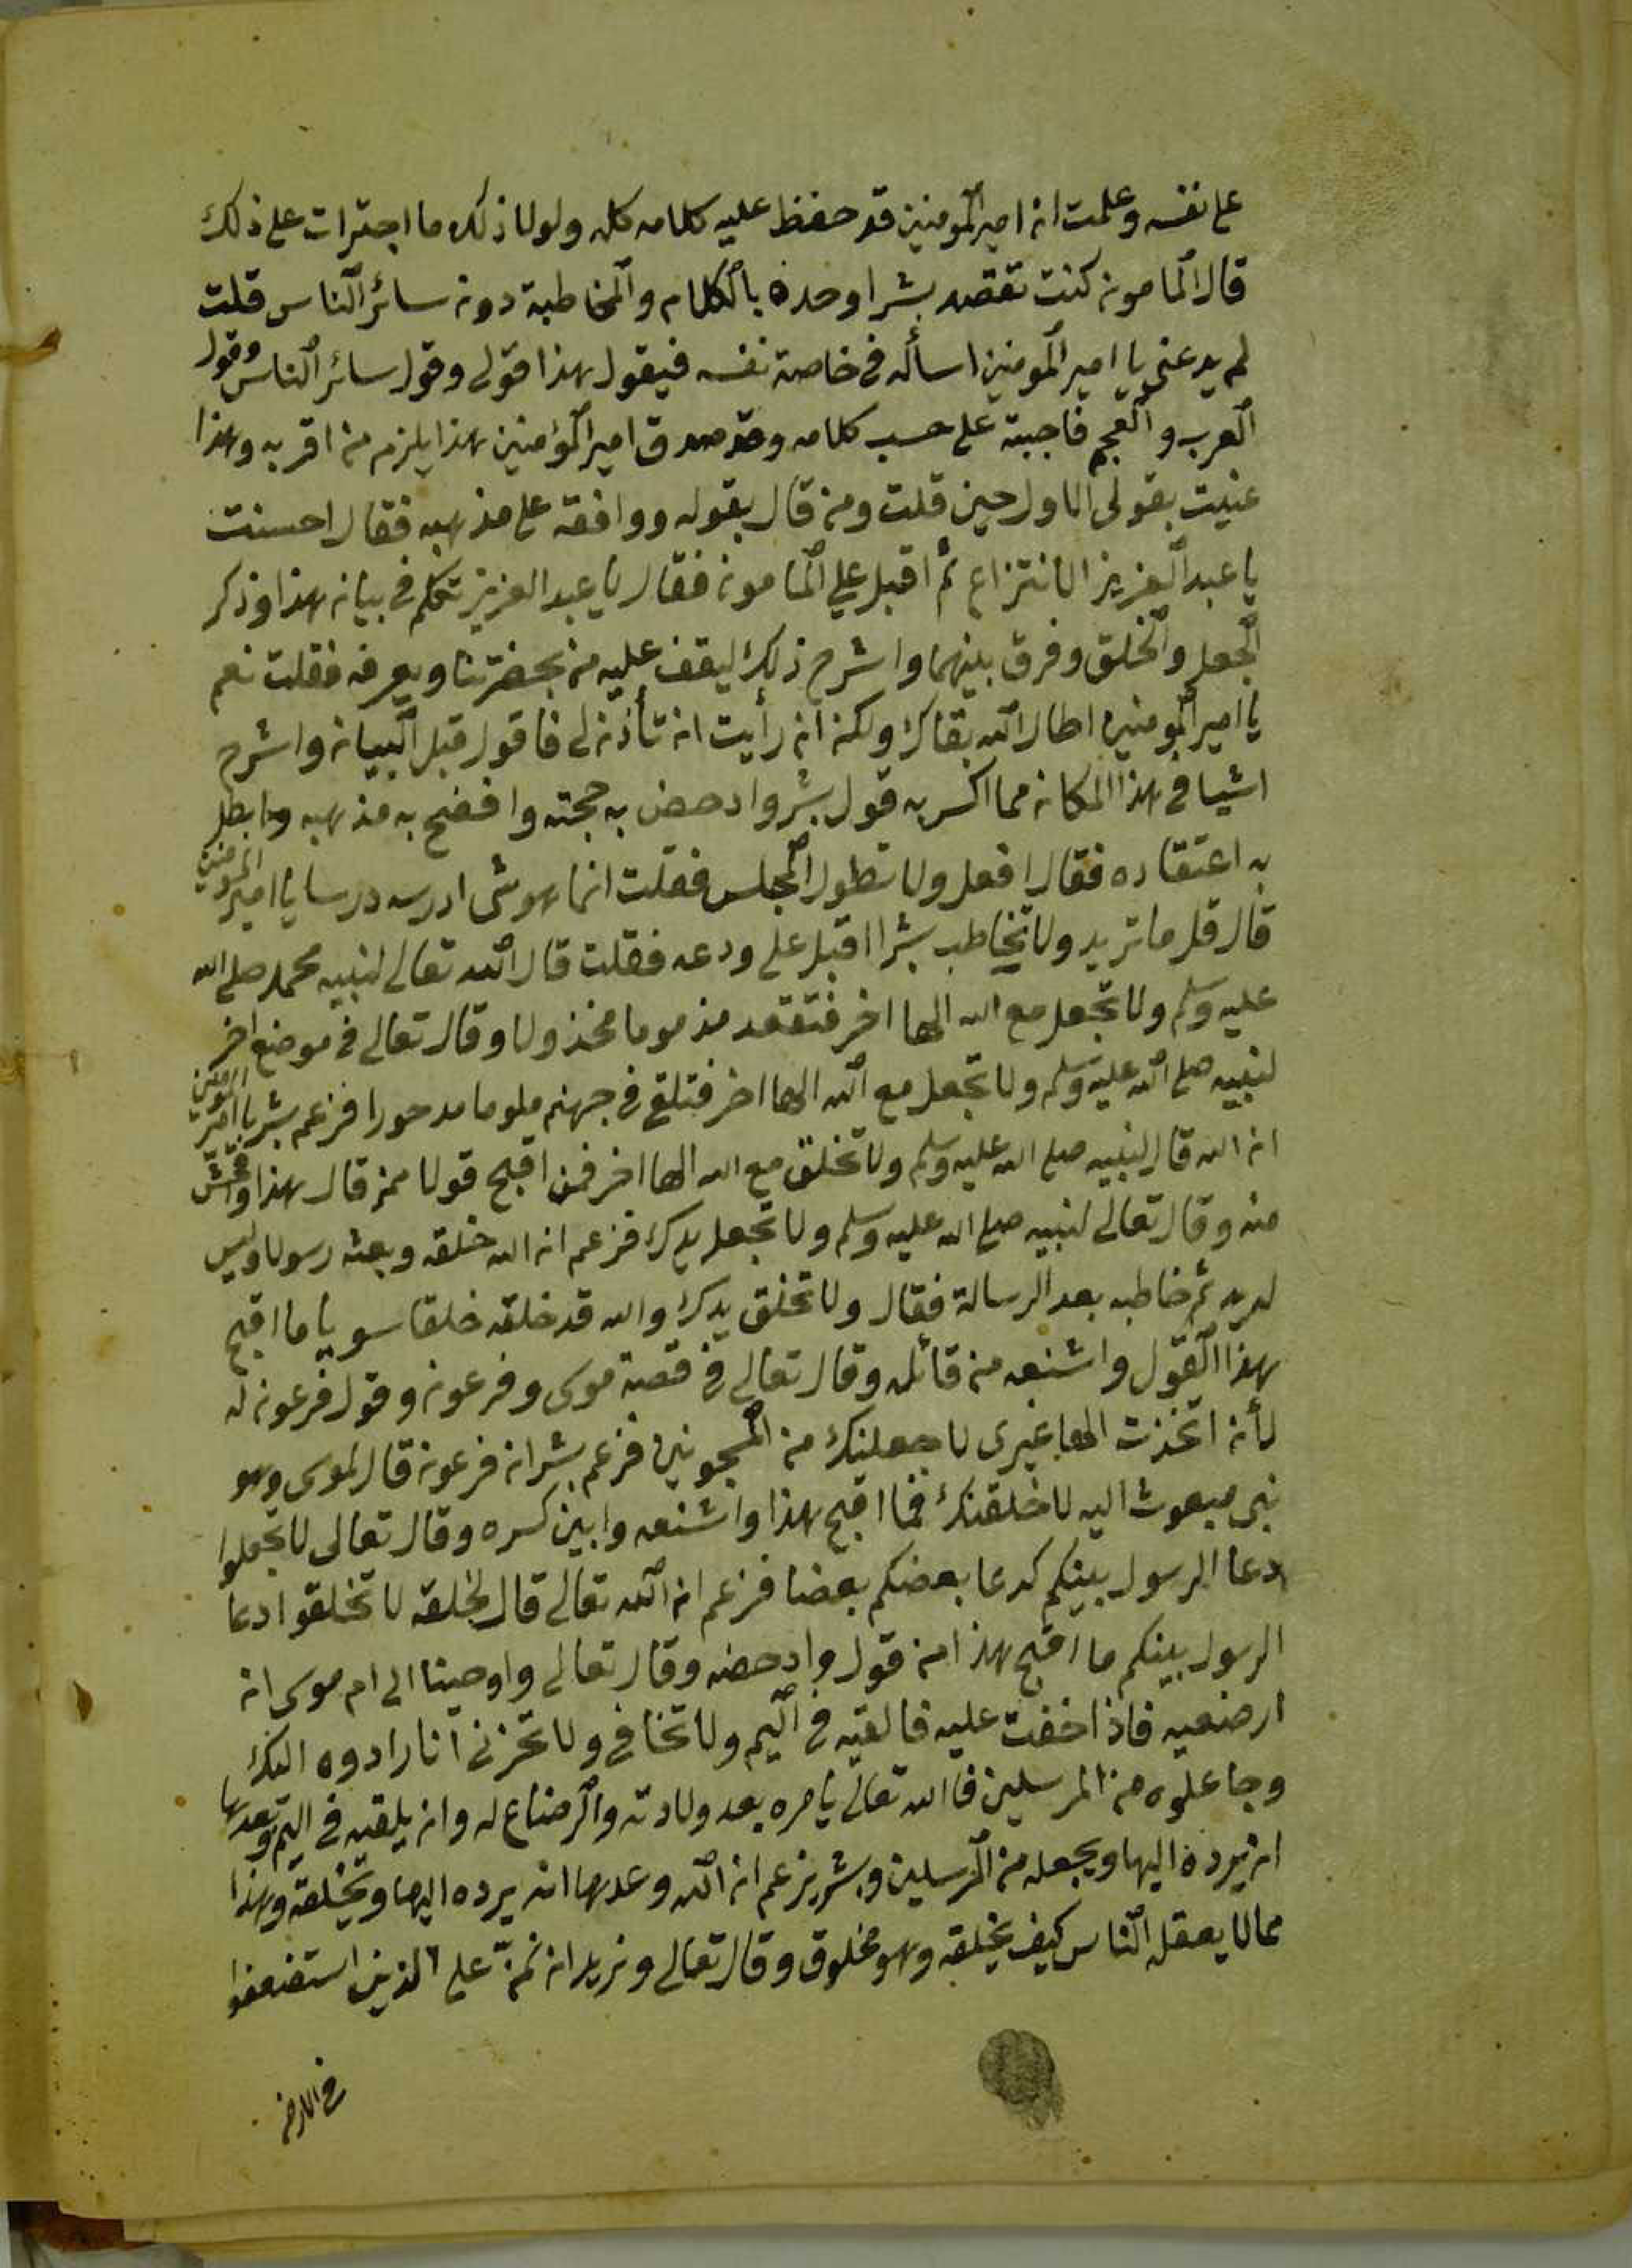 على نفسه وعلمت ان امير المومنين قد حفظ عليه كلامه كله ولولا ذلك ما اجترات على ذلك
قال المامون كنت تقصد بشرا وحده بالكلام والمخاطبة دون سائر الناس قلت
لم يدعني يا امير المومنين اسأله في خاصة نفسه فيقول هذا قولي وقول سائر الناس وقول
العرب والعجم فاجبته على حسب كلامه وقد صدق امير المؤمنين هذا يلزم من اقر به وهذا
عنيت بقولي الاول حين قلت ومن قال بقوله ووافقه على مذهبه فقال احسنت
يا عبد العزيز الانتزاع ثم اقبل علي المامون فقال يا عبد العزيز تكلم في بيان هذا وذكر
الجعل والخلق وفرق بينهما واشرح ذلك ليقف عليه من بحضرتنا ويعرفه فقلت نعم
يا امير المومنين اطال الله بقاك ولكن ان رأيت ان تأذن لي فاقول قبل البيان واشرح
اشيا في هذا المكان مما اكسر به قول بشر وادحض به حجته وافضح به مذهبه وابطل
به اعتقاده فقال افعل ولا تطول المجلس فقلت انما هو شى ادرسه درسا يا امير المومنين
قال قل ما تريد ولا تخاطب بشرا اقبل علي ودعه فقلت قال الله تعالى لنبيه محمد صلى الله
عليه وسلم ولا تجعل مع الله الها اخر فتقعد مذموما مخذولا وقال تعالى في موضع اخر
لنبيه صلى الله عليه وسلم ولا تجعل مع الله الها اخر فتلقى في جهنم ملوما مدحورا فزعم بشر يا امير المومنين
ان الله قال لنبيه صلى الله عليه وسلم ولا تخلق مع الله الها اخر فمن اقبح قولا ممن قال هذا وافحش
منه وقال تعالى لنبيه صلى الله عليه وسلم ولا تجعل يدك فزعم ان الله خلقه وبعثه رسولا وليس
له يد ثم خاطبه بعد الرسالة فقال ولا تخلق يدك والله قد خلقه خلقا سويا ما اقبح
هذا القول واشنعه من قائله وقال تعالى في قصة موسى وفرعون وقول فرعون له
لأن اتخذت الها غيرى لاجعلنك من المسجونين فزعم بشر ان فرعون قال لموسى وهو
نبي مبعوث اليه لاخلقنك فما اقبح هذا واشنعه وابين كسره وقال تعالى لا تجعلوا
دعا الرسول بينكم كدعا بعضكم بعضا فزعم ان الله تعالى قال لخلقه لا تخلقوا دعا
الرسول بينكم ما اقبح هذا من قول وادحضه وقال تعالى واوحينا الى ام موسى ان
ارضعيه فاذا خفت عليه فالقيه في اليم ولا تخافي ولا تحزني انا رادوه اليك
وجاعلوه من المرسلين فالله تعالى يامره بعد ولادته والرضاع له وان يلقيه في اليم ويعدها
ان يرده اليها ويجعله من المرسلين وبشر يزعم ان الله وعدها ان يرده اليها ويخلقه وهذا
مما لا يعقله الناس كيف يخلقه وهو مخلوق وقال تعالى ونريد ان نمنّ على الذين استضعفوا
في الارض